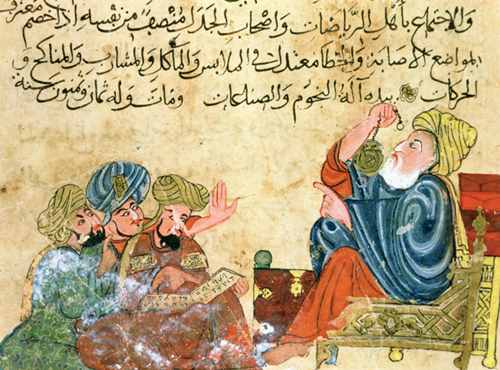 والاجتماع باهل الرياضات واصحاب الجدل منتصف من نفسه اذا خصم معترف
بمواضع الاصابة والخطا معتدل في الملابس والماكل والمشارب والمناكح و
الحركات بيده آلة النجوم والساعات ومات وله ثمان وستون سنة